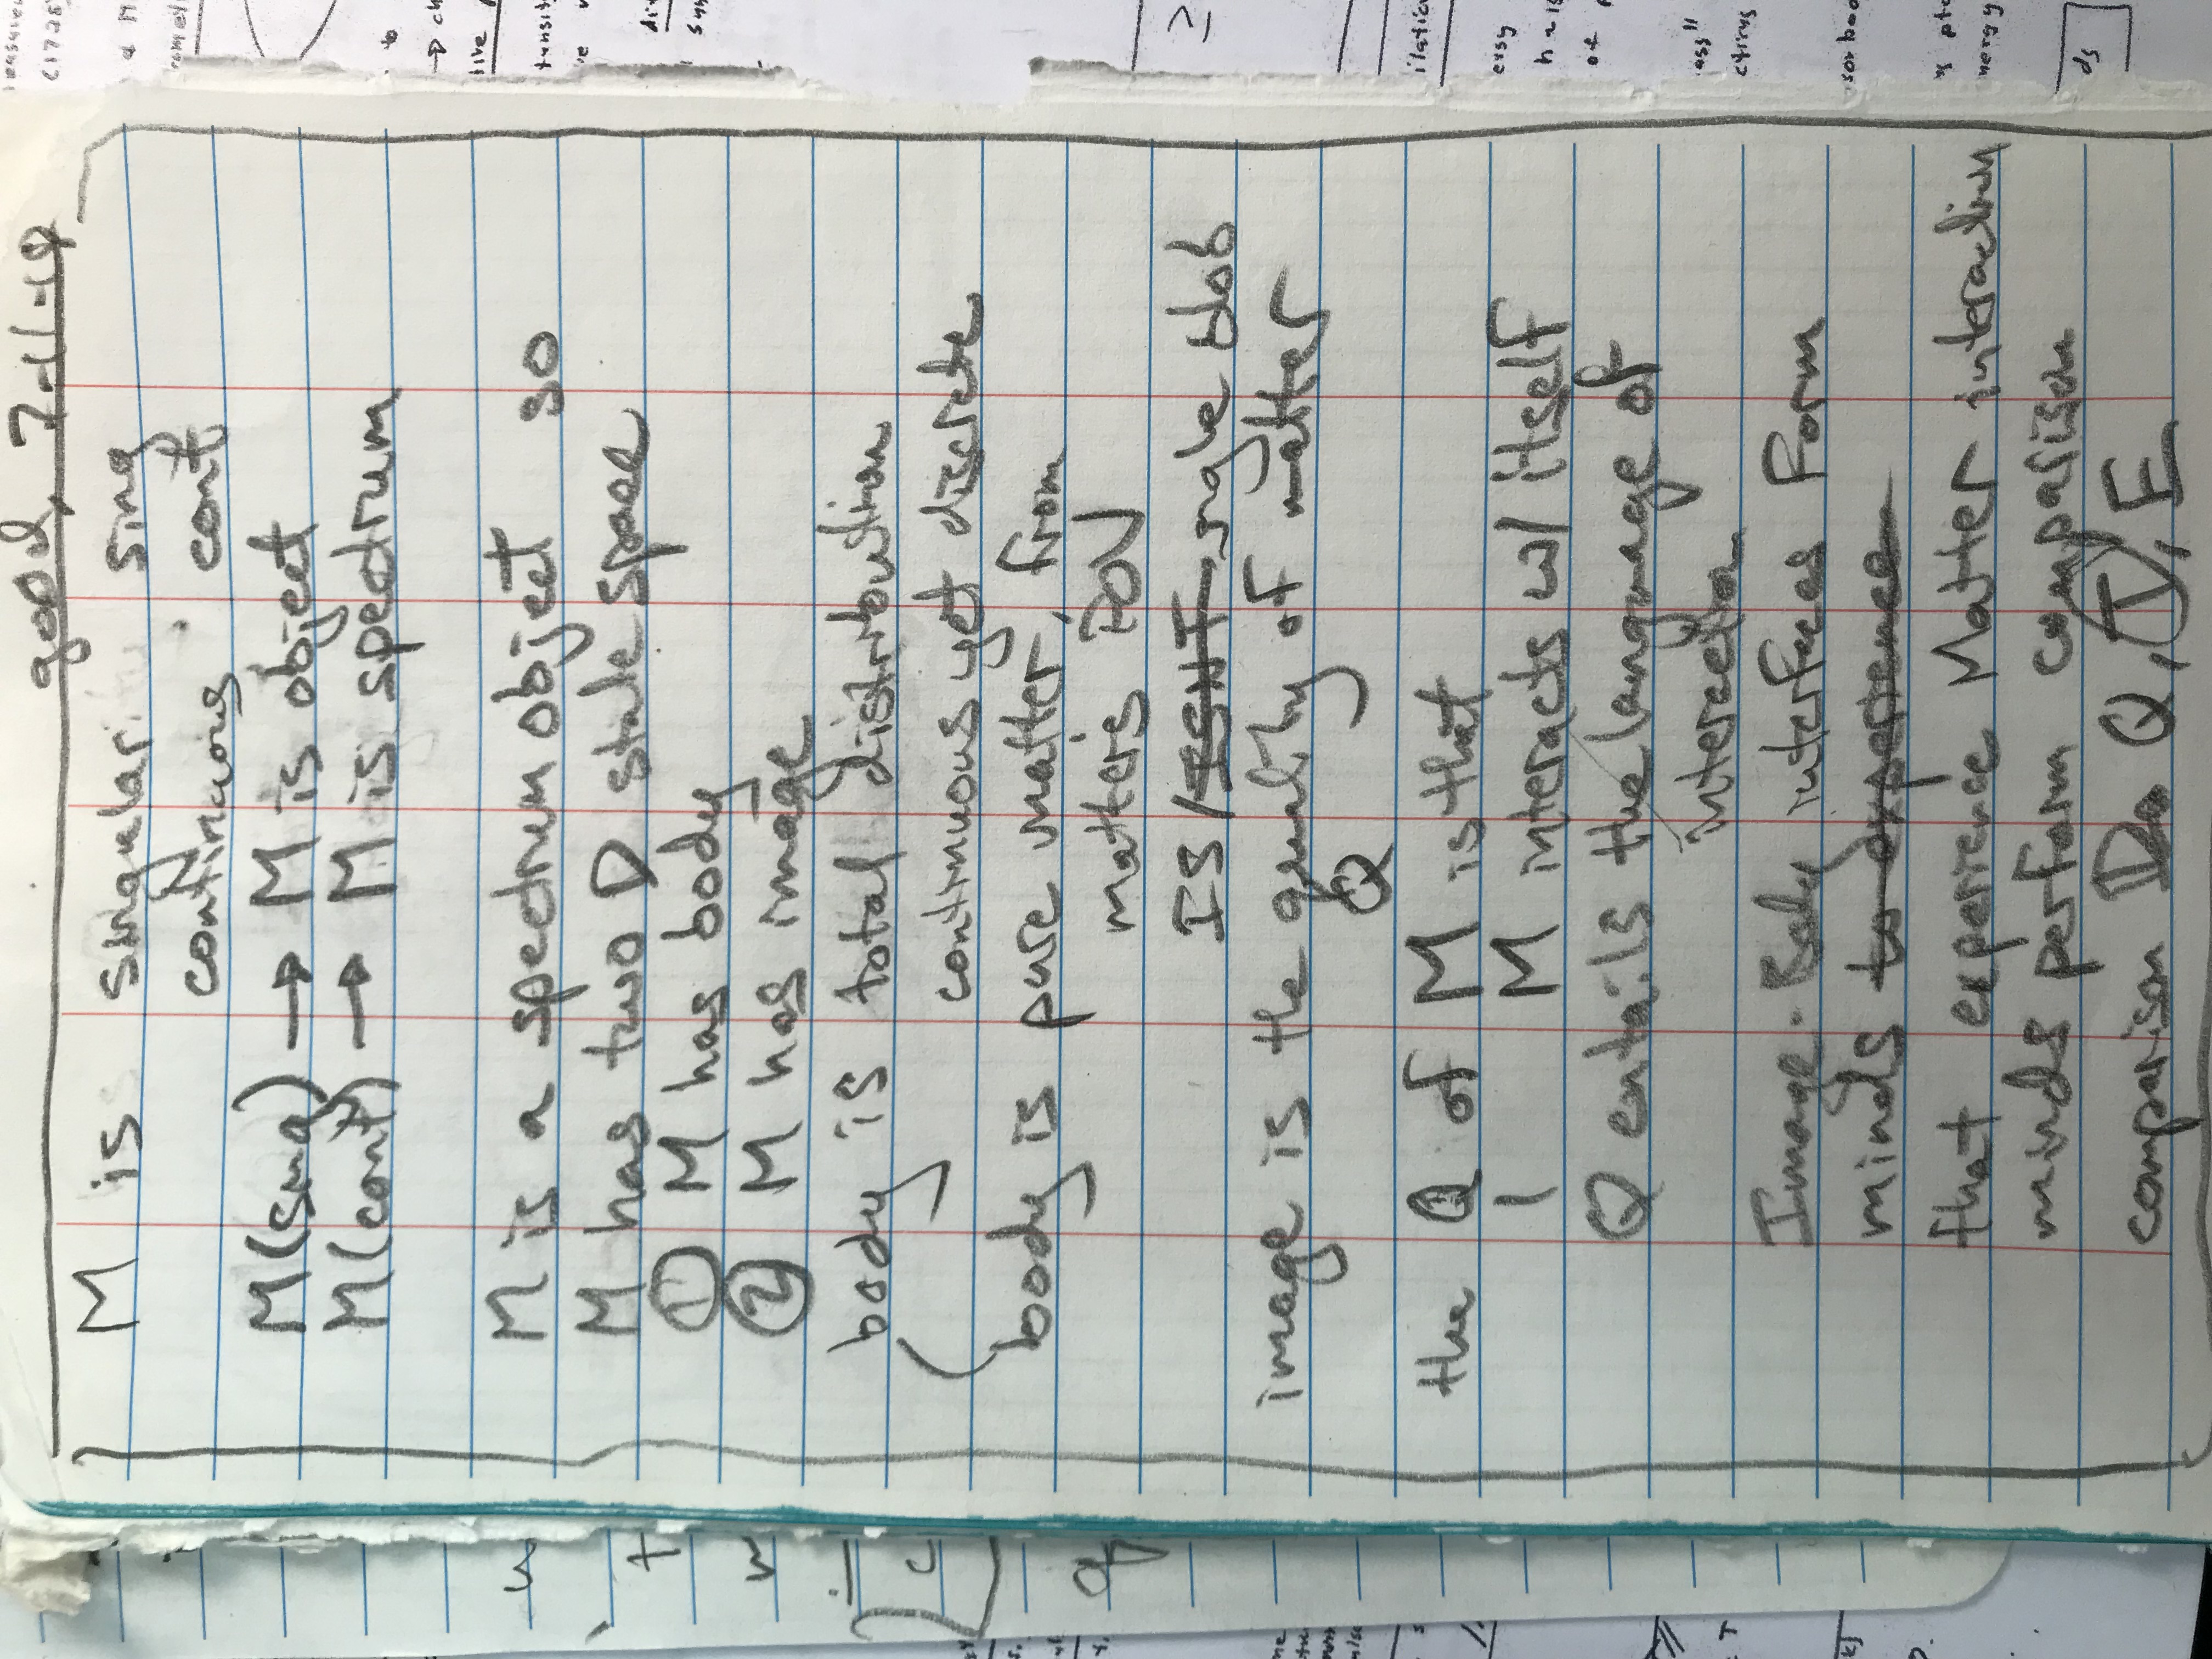 good, 7-11-18
M is singular sing
continuous cont
M(sing) → M is object
M(cont) → M is spectrum
M is a spectrum object so
M has two D state space
① M has body
② M has image
body is total distribution
( continuous yet discrete
body is pure matter, from
matter's POV
IS/ISNT single blob
image is the quality of matter
Q
the Q of M is that
| M interacts w/ itself
Q entails the language of
interaction
Image-Body interfaces form
minds to experience
that experience Matter interaction
minds perform comparison
comparison Q, T, E